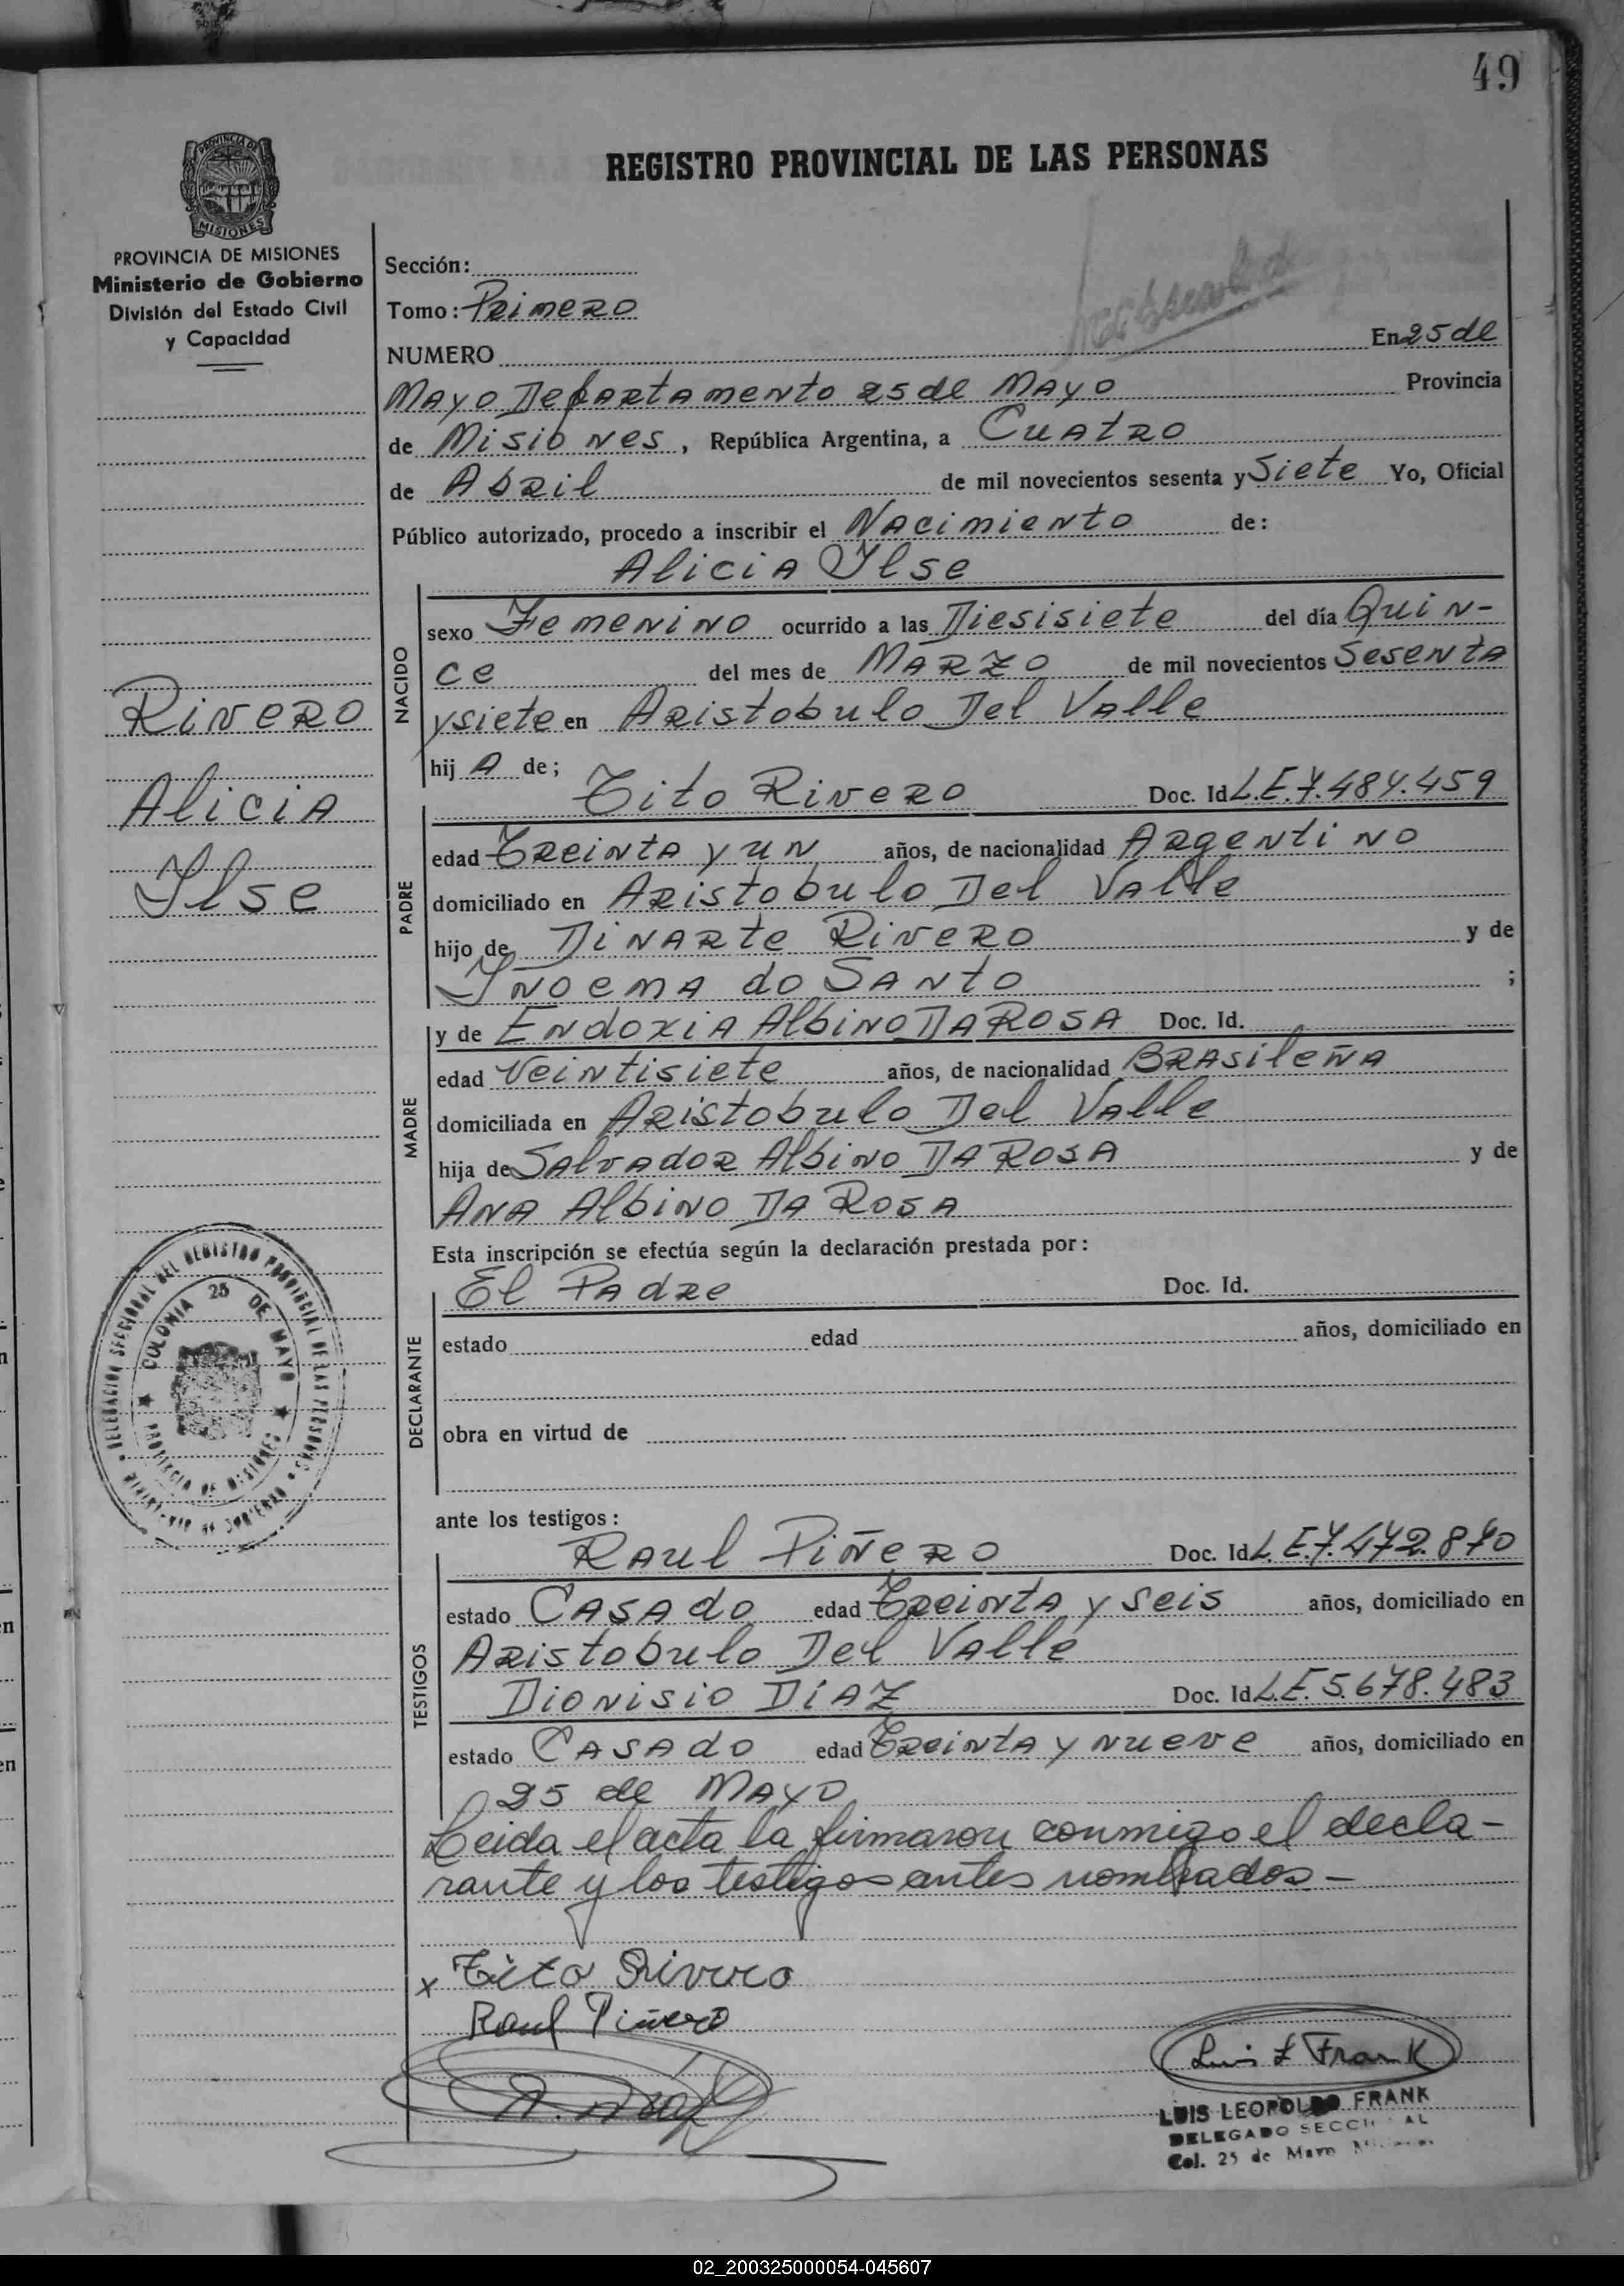 49
REGISTRO PROVINCIAL DE LAS PERSONAS
PROVINCIA DE
MISIONES
PROVINCIA DE MISIONES
Ministerio de Gobierno
División del Estado Civil
y Capacidad
Rivero
Alicia
Ilse
DELEGACION SECCIONAL DEL REGISTRO PROVINCIAL DE LAS PERSONAS
COLONIA 25 DE MAYO
PROVINCIA DE MISIONES
Sección:
Tomo: Primero
NUMERO En 25 de
Mayo Departamento 25 de Mayo Provincia
de Misiones, República Argentina, a Cuatro
de Abril de mil novecientos sesenta y Siete Yo, Oficial
Público autorizado, procedo a inscribir el Nacimiento de:
Alicia Ilse
NACIDO
sexo Femenino ocurrido a las Diesisiete del día Quin-
ce del mes de Marzo de mil novecientos Sesenta
ysiete en Aristobulo Del Valle
hij A de;
PADRE
Tito Rivero Doc. Id L.E.7.484.459
edad Treinta y un años, de nacionalidad Argentino
domiciliado en Aristobulo Del Valle
hijo de Dinarte Rivero y de
Inoema do Santo ;
MADRE
y de Endoxia Albino Da Rosa Doc. Id.
edad Veintisiete años, de nacionalidad Brasileña
domiciliada en Aristobulo Del Valle
hija de Salvador Albino Da Rosa y de
Ana Albino Da Rosa
Esta inscripción se efectúa según la declaración prestada por:
DECLARANTE
El Padre Doc. Id.
estado edad años, domiciliado en
obra en virtud de
ante los testigos:
TESTIGOS
Raul Piñero Doc. Id L.E.7.472.870
estado Casado edad Treinta y seis años, domiciliado en
Aristobulo Del Valle
Dionisio Díaz Doc. Id L.E. 5.678.483
estado Casado edad Treinta y nueve años, domiciliado en
25 de Mayo
Leida el acta la firmaron conmigo el decla-
rante y los testigos antes nombrados-
x Tito Rivero
Raul Piñero
D. Díaz
Luis L Frank
LUIS LEOPOLDO FRANK
DELEGADO SECCIONAL
Col. 25 de Mayo
02_200325000054-045607